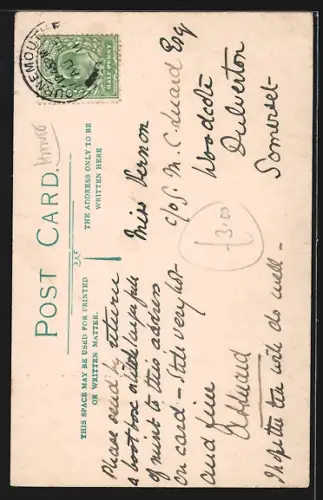 POST CARD.
THIS SPACE MAY BE USED FOR PRINTED
OR WRITTEN MATTER.
THE ADDRESS ONLY TO BE
WRITTEN HERE
BOURNEMOUTH
HALF PENNY
Please send by return
a boot box
of mint to this address
on card – Still very hot
and fine
I hope the tea will do well –
Miss Vernon
c/o S. M. C. Esq
Woodcote
Dulverton
Somerset–
£3.00